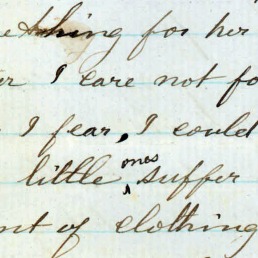 thing for her
I care not fo
I fear, I could
little ones suffer
nt of clothing